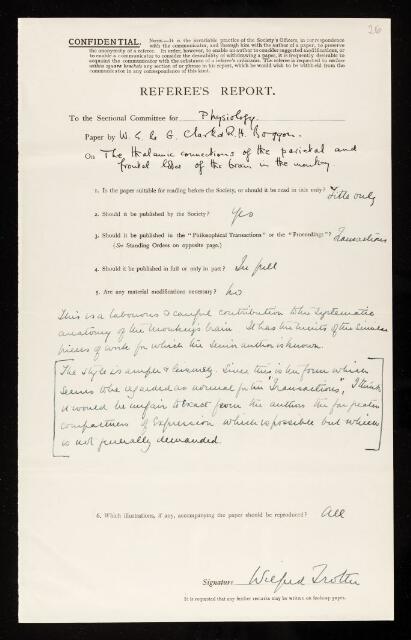 26
CONFIDENTIAL.
NOTE.—It is the invariable practice of the Society's Officers, in correspondence
with the communicator, and through him with the author of a paper, to preserve
the anonymity of a referee. In order, however, to enable an author to consider suggested modifications, or
to enable a communicator to consider the desirability of withdrawing a paper, it is frequently desirable to
acquaint the communicator with the substance of a referee's criticisms. The referee is requested to enclose
within square brackets any section of or phrase in his report, which he would wish to be withheld from the
communicator in any correspondence of this kind.
REFEREE'S REPORT.
To the Sectional Committee for Physiology.
Paper by W. E. Le G. Clark & R. H. Boggon.
On The thalamic connections of the parietal and
frontal lobes of the brain in the monkey
1. Is the paper suitable for reading before the Society, or should it be read in title only? Title only
2. Should it be published by the Society? Yes
3. Should it be published in the "Philosophical Transactions" or the "Proceedings"? Transactions
(See Standing Orders on opposite page.)
4. Should it be published in full or only in part? In full
5. Are any material modifications necessary? No
This is a laborious & careful contribution to the systematic
anatomy of the monkey's brain. It has the merits of the similar
pieces of work for which the senior author is known.
[The style is ample & leisurely. Since this is the form which
seems to be regarded as normal for the "Transactions", I think
it would be unfair to exact from the authors the far greater
compactness of expression which is possible but which
is not generally demanded.]
6. Which illustrations, if any, accompanying the paper should be reproduced? All
Signature Wilfred Trotter
It is requested that any further remarks may be written on foolscap paper.